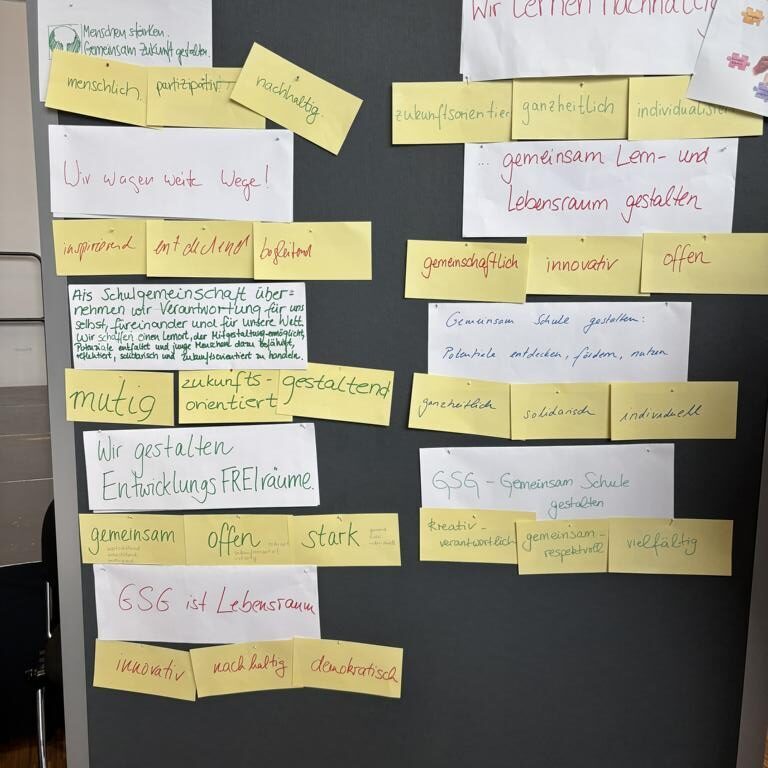 Menschen stärken.
Gemeinsam Zukunft gestalten.
menschlich.
partizipativ
nachhaltig.
Wir wagen weite Wege!
inspirierend
entdeckend
begleitend
Als Schulgemeinschaft über=
nehmen wir Verantwortung für uns
selbst, füreinander und für unsere Welt.
Wir schaffen einen Lernort, der Mitgestaltung ermöglicht,
Potenziale entfaltet und junge Menschen dazu befähigt,
reflektiert, solidarisch und zukunftsorientiert zu handeln.
mutig
zukunfts-
orientiert
gestaltend
Wir gestalten
EntwicklungsFREIräume.
gemeinsam
offen
stark
GSG ist Lebensraum
innovativ
nachhaltig
demokratisch
Wir lernen nachhaltig
zukunftsorientier
ganzheitlich
individualisie
... gemeinsam Lern- und
Lebensraum gestalten
gemeinschaftlich
innovativ
offen
Gemeinsam Schule gestalten:
Potenziale entdecken, fördern, nutzen
ganzheitlich
solidarisch
individuell
GSG - Gemeinsam Schule
gestalten
kreativ-
verantwortlich
gemeinsam-
respektvoll
vielfältig